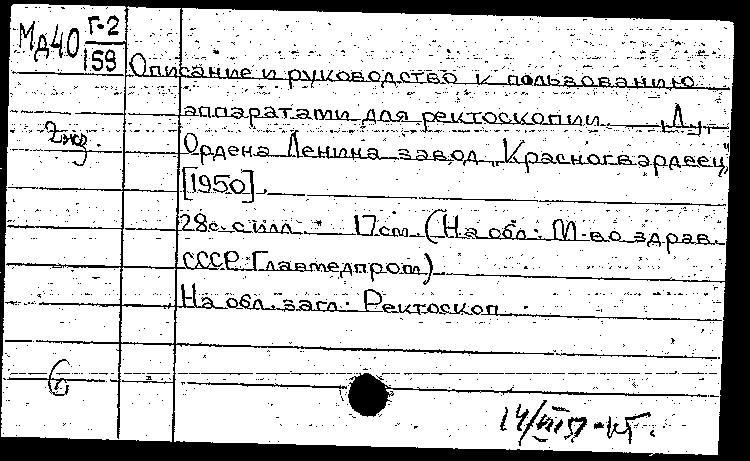 Мд40 Г-2
159
Описание и руководство к пользованию
аппаратами для ректоскопии. "Л",
2 экз.
Ордена Ленина завод "Красногвардеец",
[1950].
28с. с илл. 17 см. (На обл.: М-во здрав.
СССР. Главмедпром)
На обл. загл.: Ректоскоп
6